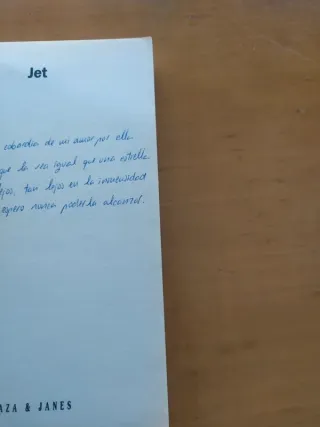 Jet
cobardía de mi amor por ella
que la vea igual que una estrella
lejos, tan lejos en la inmensidad
espero nunca poderla alcanzar.
AZA & JANES